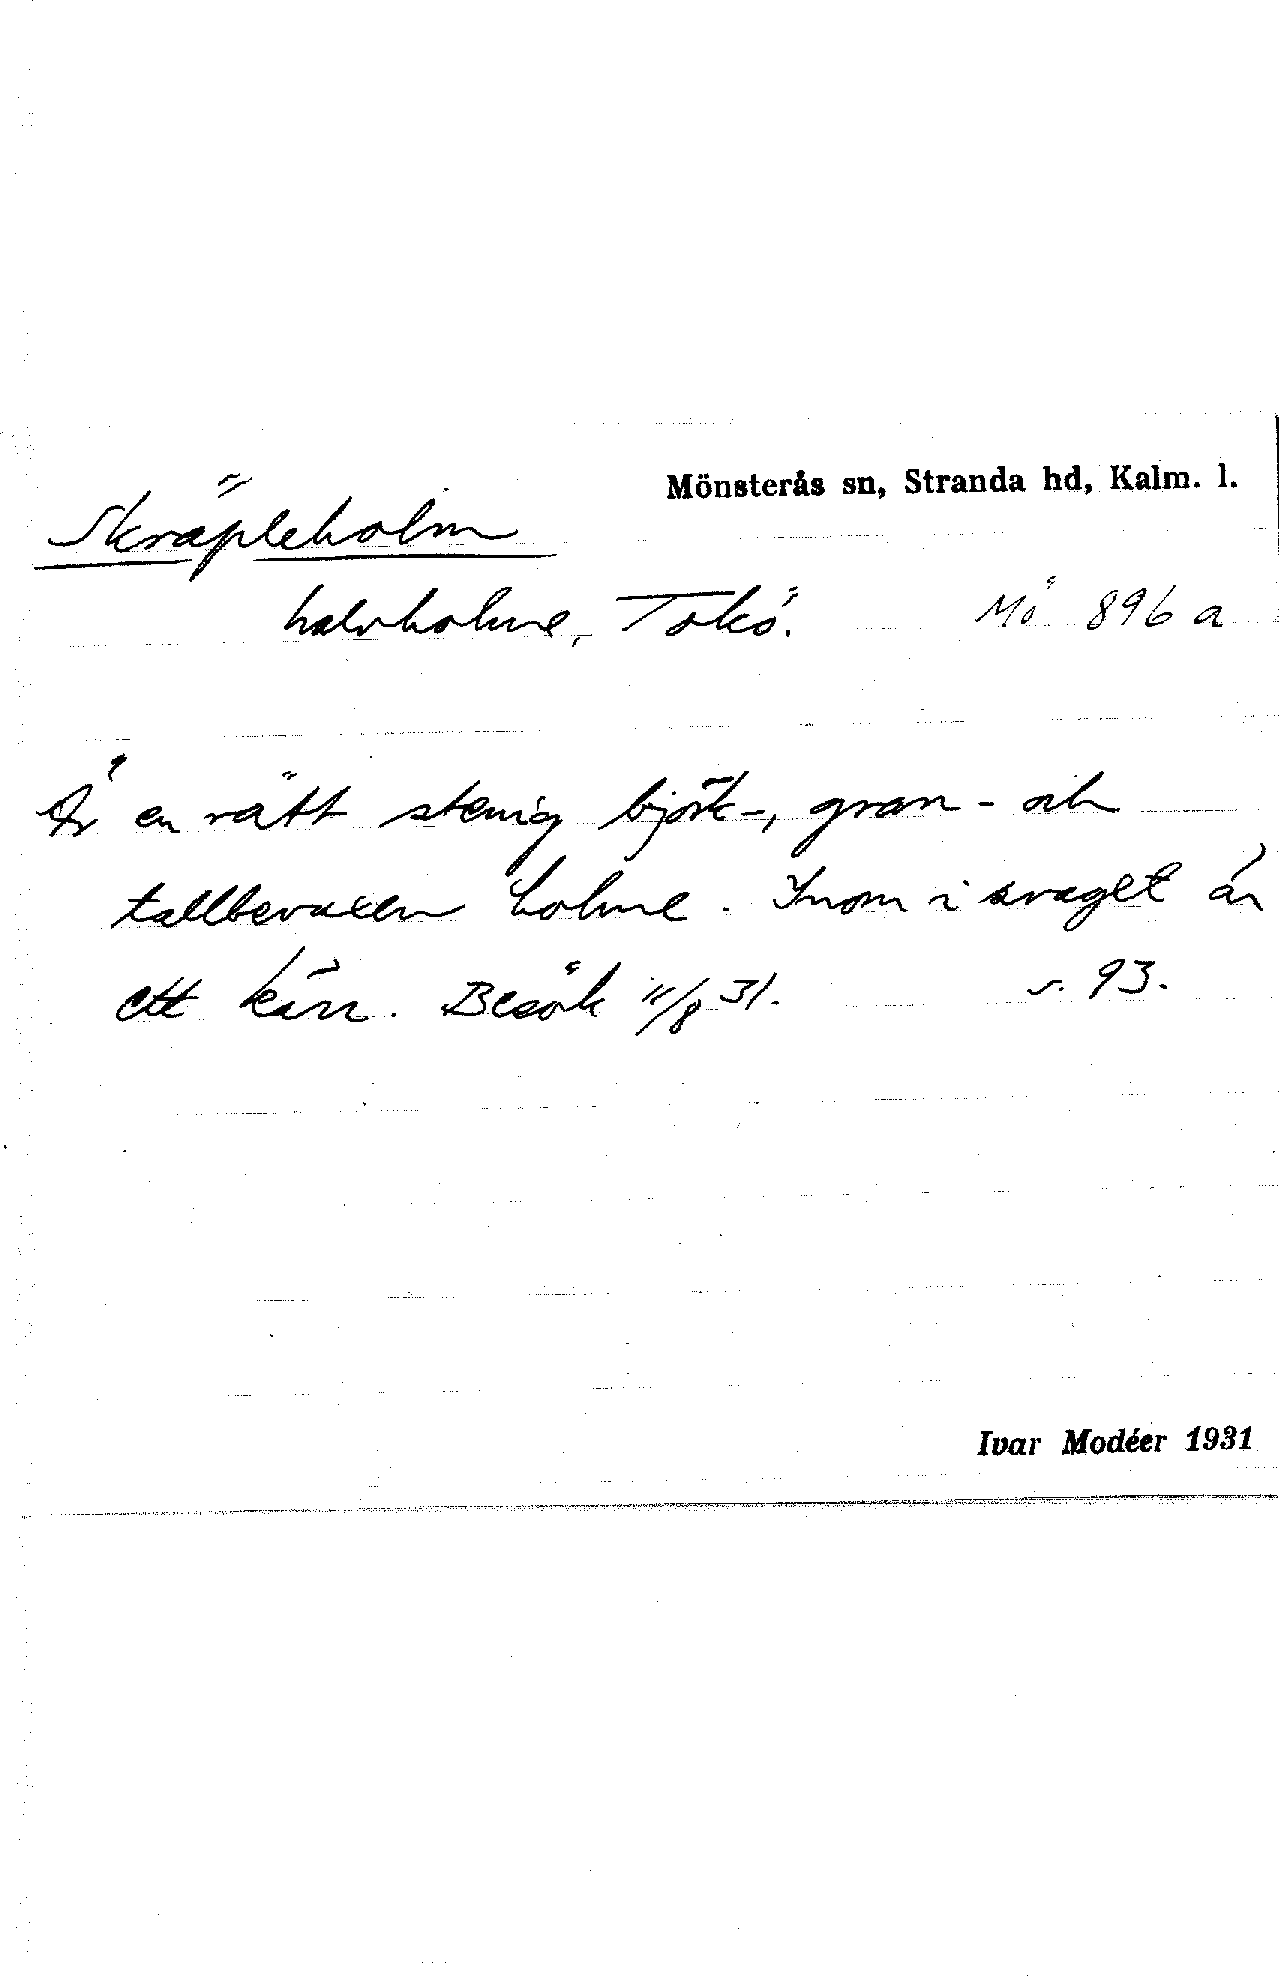 Mönsterås sn, Stranda hd, Kalm. l.
Skräpleholm
halvholme, Tokö. Mö 896 a
Är en rätt stenig björk-, gran- och
tallbevuxen holme. Inom i svaget är
ett kärr. Besök 11/8 31. s. 93.
Ivar Modéer 1931